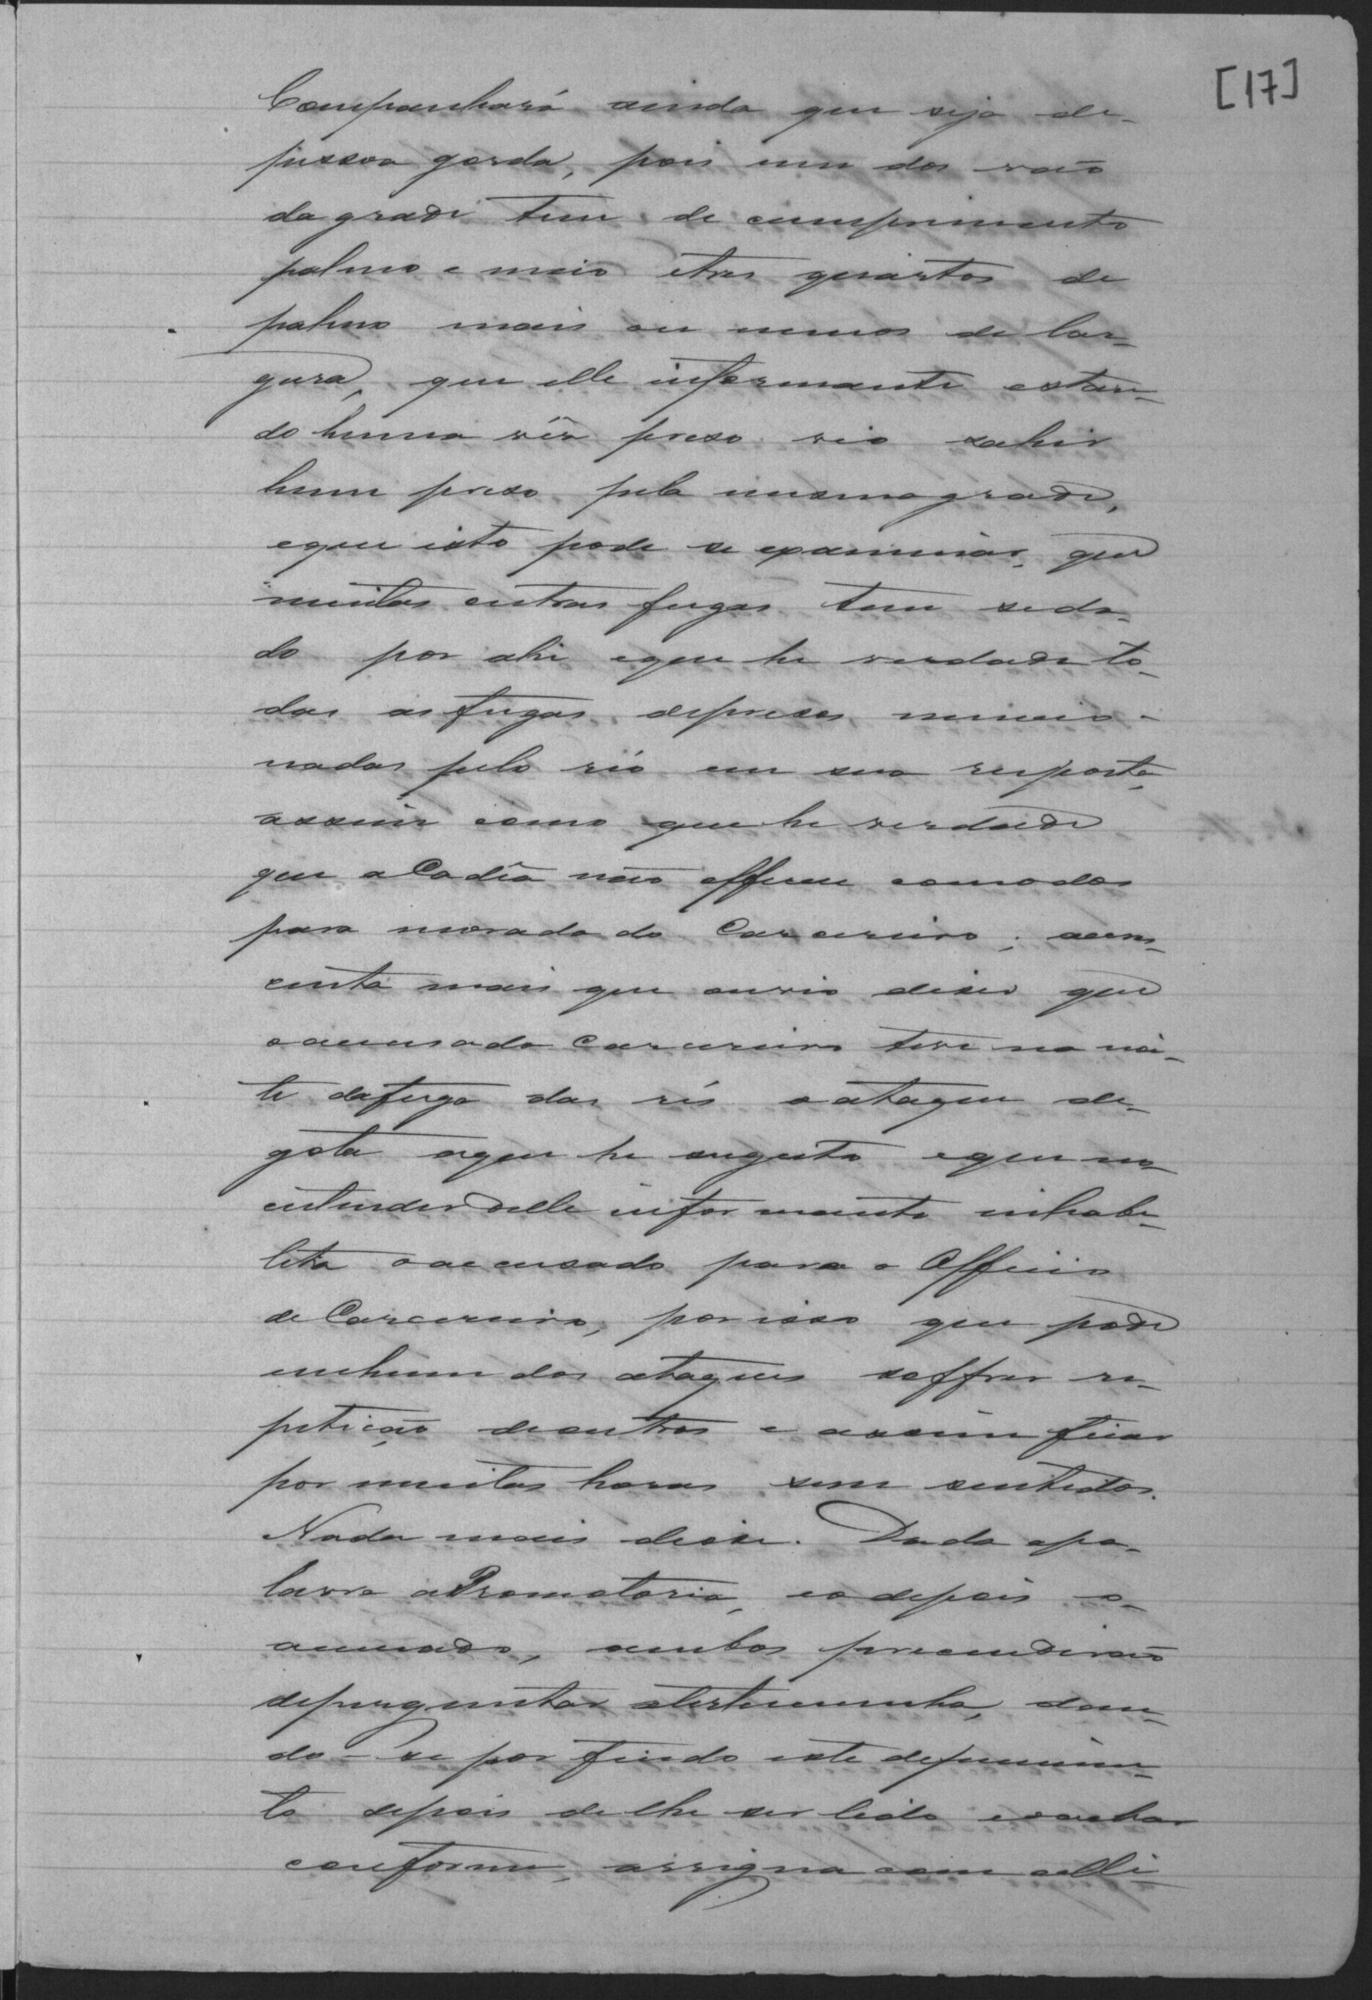 [17]
Companhará ainda que seja de-
pessoa gorda, pois um dos vaõs
da grade tem de cumprimento
palmo e meio etres quartos de
palmo mais ou menos de lar-
gura, que elle informante estan-
do huma vês preso vio sahir
hum preso pela mesma grade,
eque isto pode se examinar, que
muitas outras fugas tem seda-
do por ahi eque he verdade to-
das as fugas depresos mencio-
nadas pelo réo em sua resposta,
assim como que he verdade
que a Cadêa não offerece comodos
para morada do Carcereiro; acres-
centa mais que ouvio diser que
oacusado Carcereiro teve na noi-
te dafuga das rés oataque de-
gota aque he sugeito eque no
entender delle informante inhabe-
lita oaccusado para o Officio
de Carcereiro, por isso que póde
em hum dos ataques soffrer re-
petição deoutros e assim ficar
por muitas horas sem sentidos.
Nada mais disse. Dada apa-
lavra aPromotoria, eodepois o-
acusado, ambos prescendiraõ
deperguntar atestemunha, dan-
do-se por findo este depoimen-
to depois delhe ser lido eoachar
conforme, assigna com elle